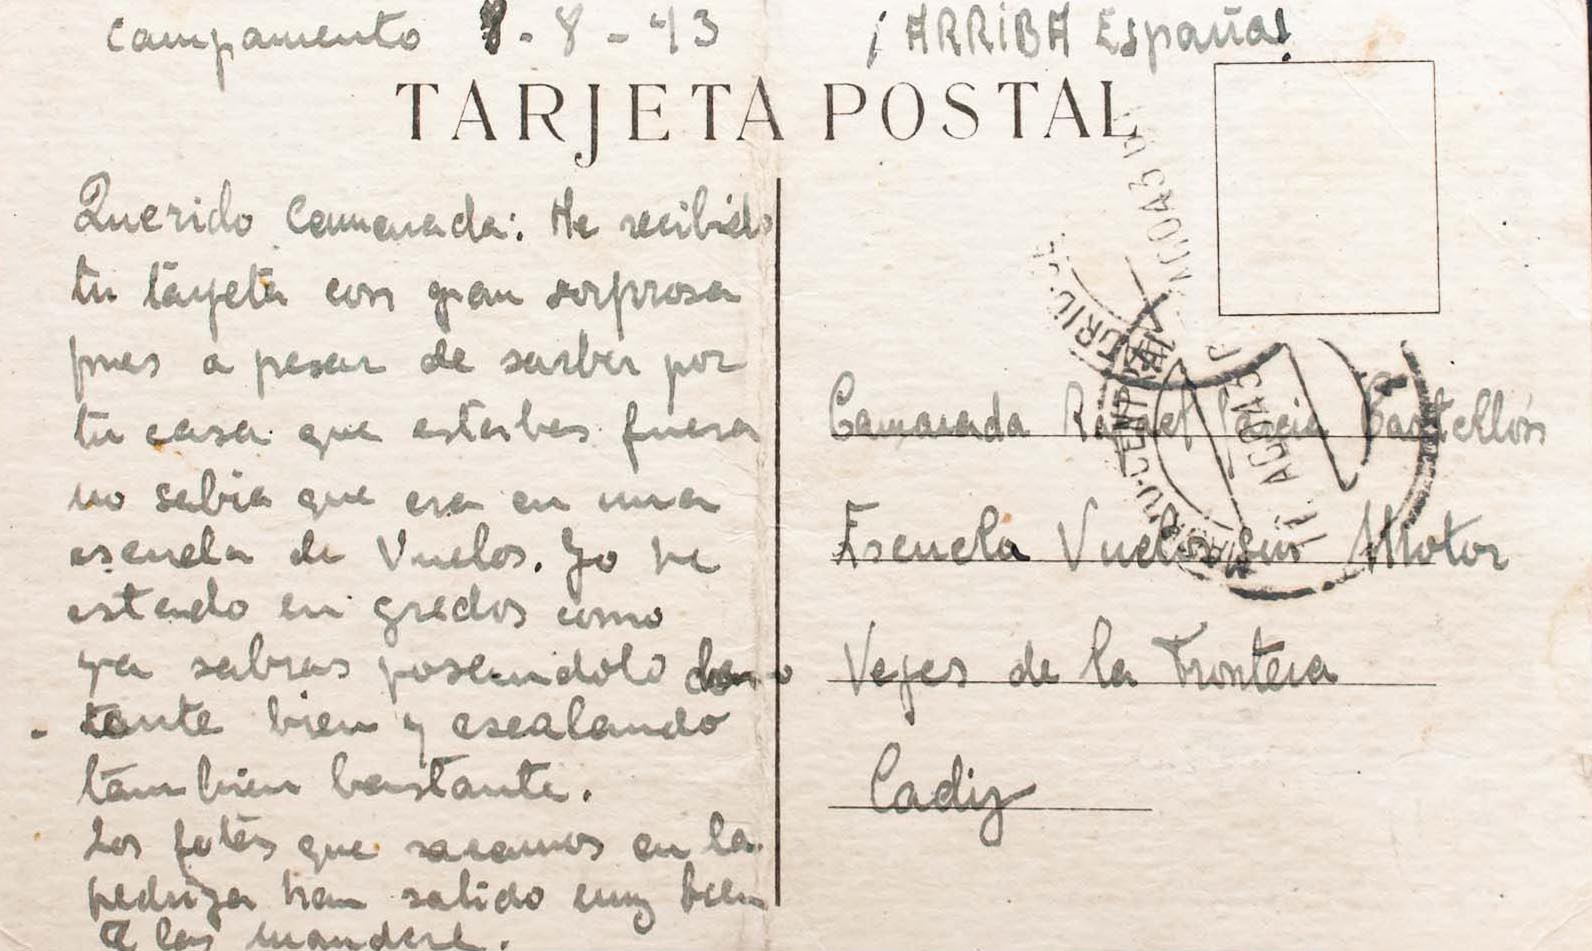 Campamento 8-8-43 ¡ARRIBA España!
TARJETA POSTAL
Querido Camarada: He recibido
tu tarjeta con gran sorprosa
pues a pesar de sarber por
tu casa que estabas fuera
no sabia que era en una
escuela de Vuelos. Yo he
estado en gredos como
ya sabras pasandolo
tante bien y escalando
tambien bastante.
Las fotos que sacamos en la
pedriza han salido muy bien
las mandaré.
Camarada Rafael Castellós
Escuela Vuelos sin Motor
Vejer de la Frontera
Cadiz
AGO 43
CENTRAL
AGO 43